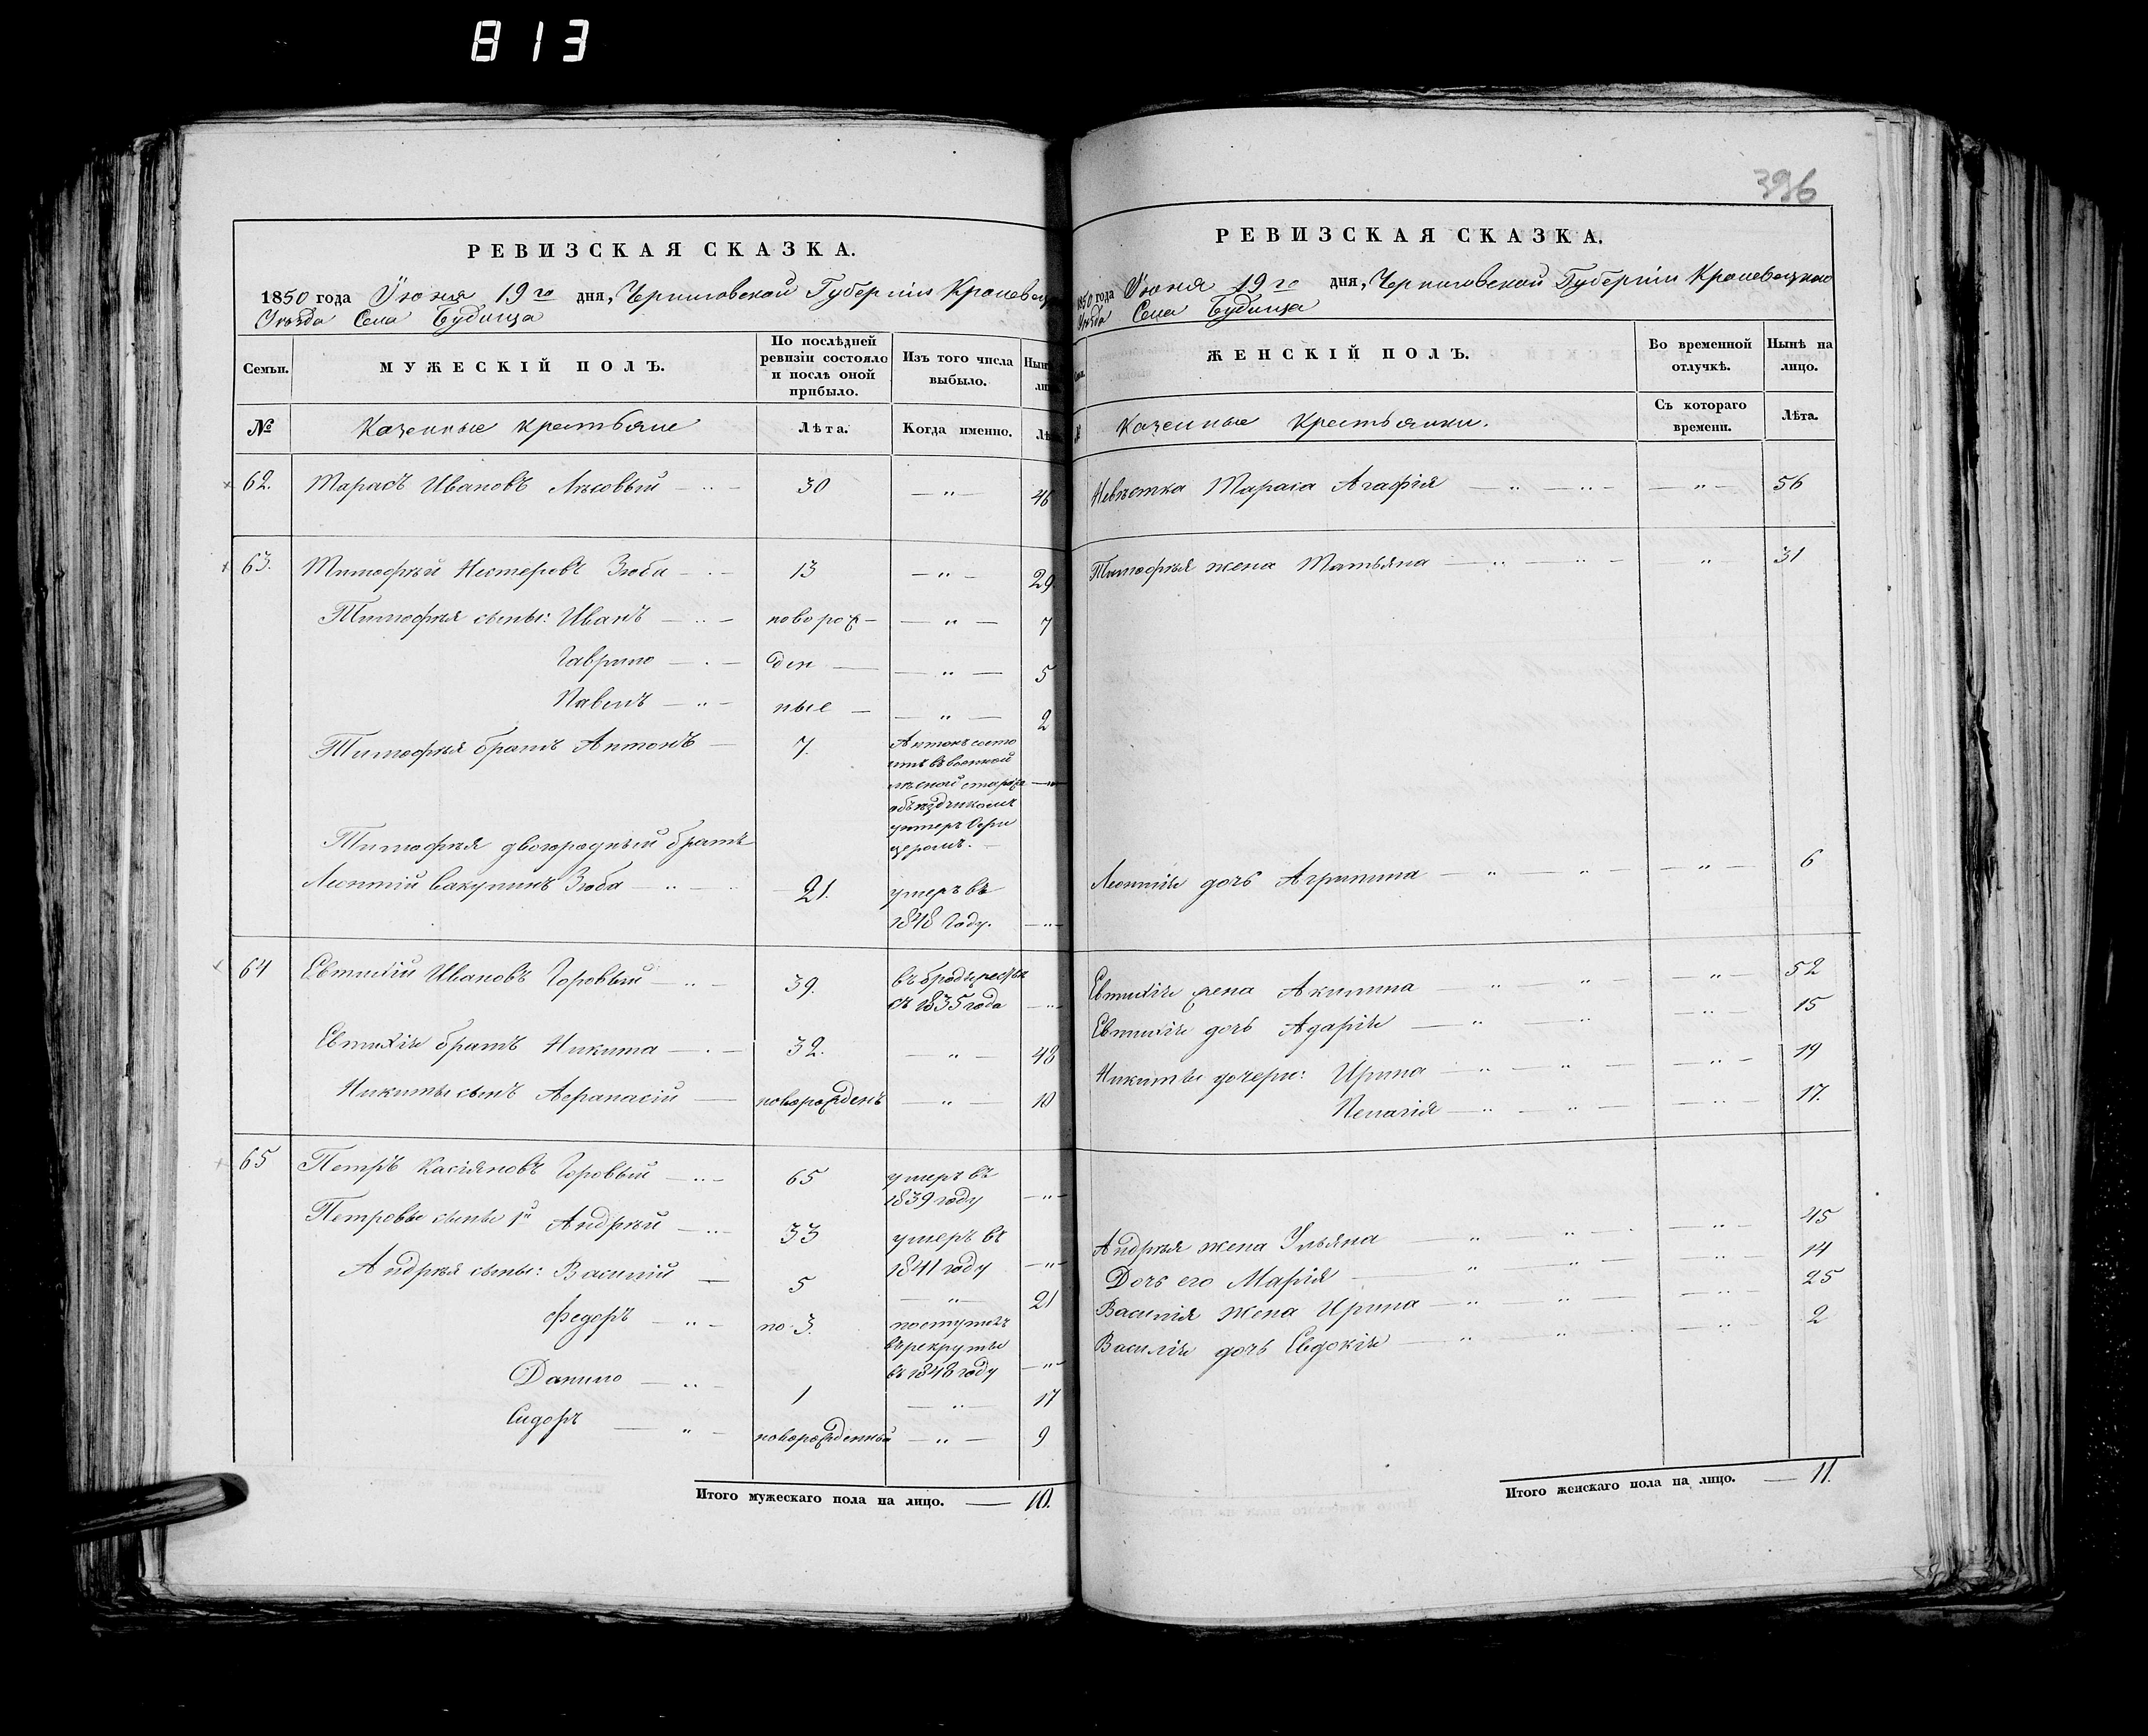 813
396
РЕВИЗСКАЯ СКАЗКА.
1850 года Июня 19го дня, Черниговской Губерніи Кролевец
Уезда Села Будища
Семьи.
МУЖЕСКІЙ ПОЛЪ.
По послѣдней ревизіи состояло и послѣ оной прибыло.
Изъ того числа выбыло.
№
Казенные крестьяне
Лѣта.
Когда именно.
62. Тарасъ Ивановъ Лѣсовый 30 — " — 46
63. Тимофѣй Нестеровъ Зюба 13 — " — 29
Тимофѣя сыны: Иванъ новорож— — " — 7
Гаврило ден — — " — 5
Павелъ ные — — " — 2
Тимофѣя братъ Антонъ 7. Антонъ состо
итъ въ военной
лѣсной стражѣ — " —
объѣздчикомъ
унтеръ Офи
церомъ.
Тимофѣя двоюродный братъ
Леонтій Вакулинъ Зюба 21. умеръ въ
1848 Году. — " —
64 Евтихій Ивановъ Горовый 39. въ бродяжествѣ
съ 1835 года — " —
Евтихія братъ Никита 32. — " — 48
Никиты сынъ Афанасій новорожденъ — " — 10
65 Петръ Касіяновъ Горовый 65 умеръ въ
1839 году — " —
Петровы сыны 1й Андрѣй 33 умеръ въ
1841 году — " —
Андрѣя сыны: Василій 5 — " — 21
Федоръ по 3. поступилъ
въ рекруты
въ 1848 году — " —
Данило 1 — " — 17
Сидоръ новорожденный — " — 9
Итого мужескаго пола на лицо. — 10.
РЕВИЗСКАЯ СКАЗКА.
1850 года Июня 19го дня, Черниговской Губерніи Кролевецкаго
Уезда Села Будища
ЖЕНСКІЙ ПОЛЪ.
Во временной отлучкѣ.
Нынѣ на лицо.
Казенные Крестьянки.
Съ котораго времени.
Лѣта.
Невѣстка Тараса Агафія — " — 56
Тимофѣя жена Татьяна " 31
Леонтія дочь Агрипина — " — 6
Евтихія жена Акилина — " — 52
Евтихія дочь Адарія — " — 15
Никиты дочери: Ирина — " — 19
Пелагія — " — 17.
Андрѣя жена Ульяна — " — 45
Дочь его Марія — " — 14
Василія жена Ирина — " — 25
Василія дочь Евдокія — " — 2
Итого женскаго пола на лицо. — 11.